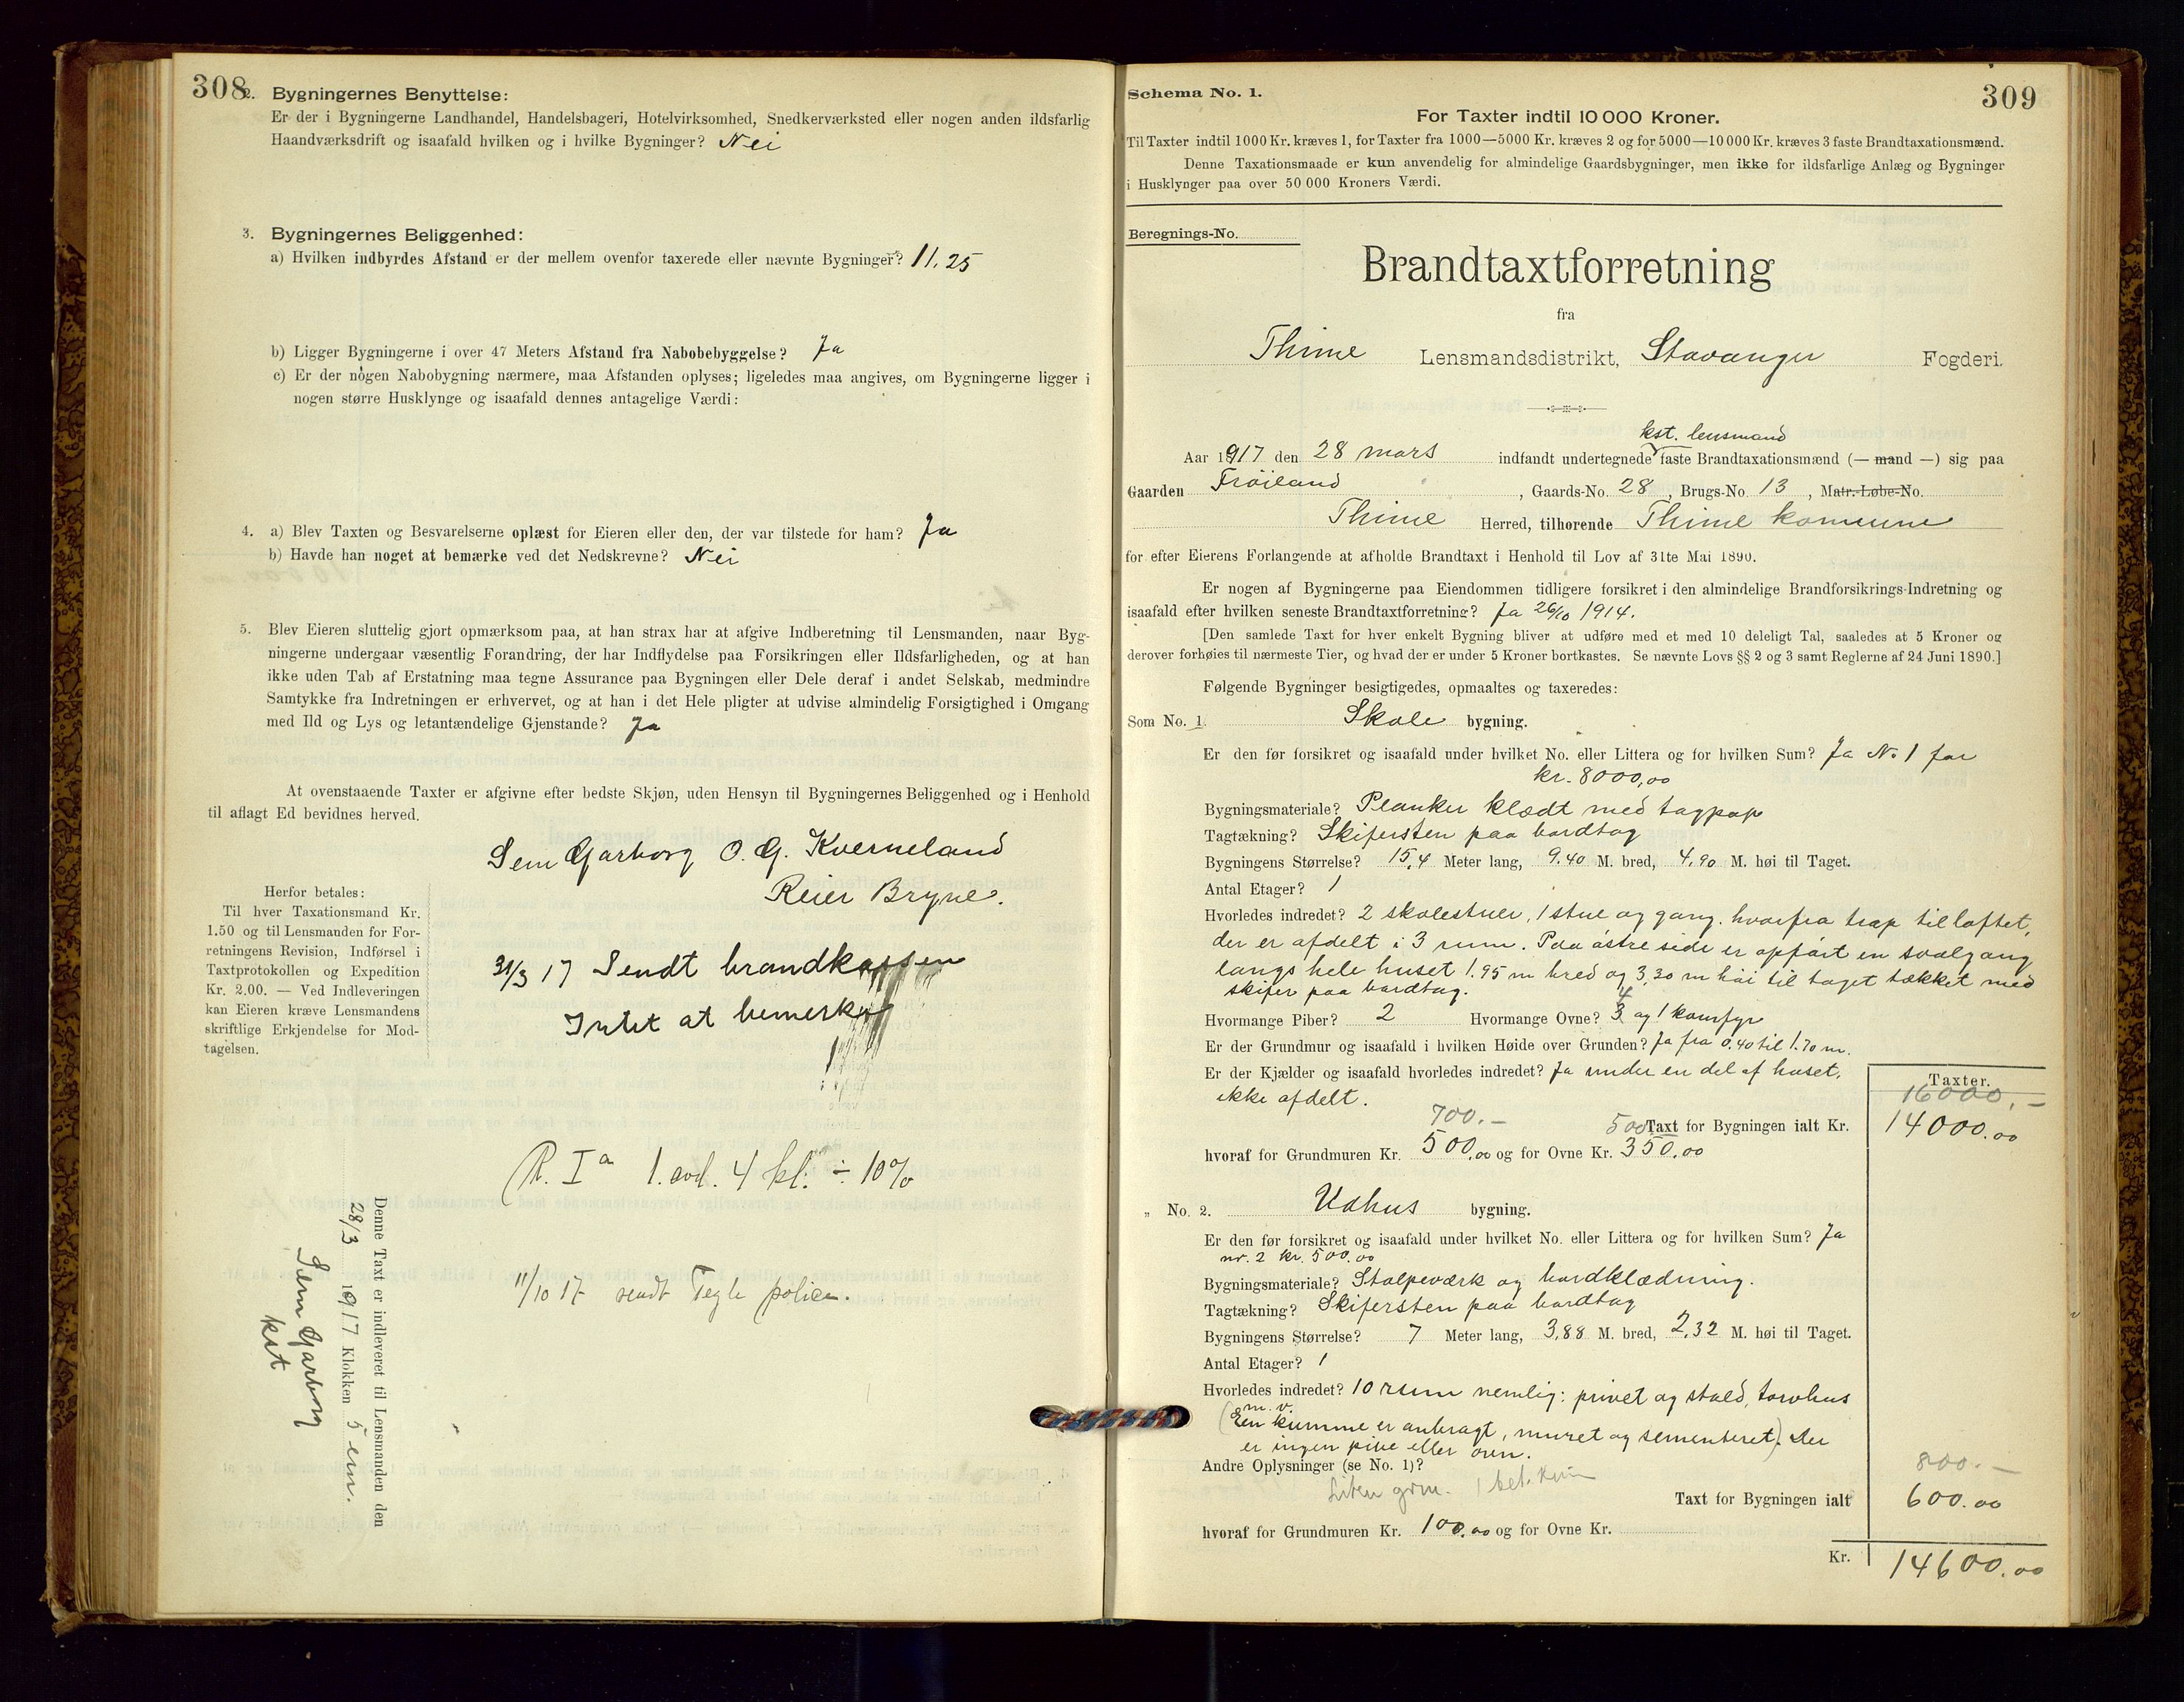 308
2. Bygningernes Benyttelse:
Er der i Bygningerne Landhandel, Handelsbageri, Hotelvirksomhed, Snedkerværksted eller nogen anden ildsfarlig
Haandværksdrift og isaafald hvilken og i hvilke Bygninger? Nei
3. Bygningernes Beliggenhed:
a) Hvilken indbyrdes Afstand er der mellem ovenfor taxerede eller nævnte Bygninger? 11.25
b) Ligger Bygningerne i over 47 Meters Afstand fra Nabobebyggelse? Ja
c) Er der nogen Nabobygning nærmere, maa Afstanden oplyses; ligeledes maa angives, om Bygningerne ligger i
nogen større Husklynge og isaafald dennes antagelige Værdi:
4. a) Blev Taxten og Besvarelserne oplæst for Eieren eller den, der var tilstede for ham? Ja
b) Havde han noget at bemærke ved det Nedskrevne? Nei
5. Blev Eieren sluttelig gjort opmærksom paa, at han strax har at afgive Indberetning til Lensmanden, naar Byg-
ningerne undergaar væsentlig Forandring, der har Indflydelse paa Forsikringen eller Ildsfarligheden, og at han
ikke uden Tab af Erstatning maa tegne Assurance paa Bygningen eller Dele deraf i andet Selskab, medmindre
Samtykke fra Indretningen er erhvervet, og at han i det Hele pligter at udvise almindelig Forsigtighed i Omgang
med Ild og Lys og letantændelige Gjenstande? Ja
At ovenstaaende Taxter er afgivne efter bedste Skjøn, uden Hensyn til Bygningernes Beliggenhed og i Henhold
til aflagt Ed bevidnes herved.
Sem Garborg O. G. Kverneland
Reier Bryne.
Herfor betales:
Til hver Taxationsmand Kr.
1.50 og til Lensmanden for For-
retningens Revision, Indførsel i
Taxtprotokollen og Expedition
Kr. 2.00. — Ved Indleveringen
kan Eieren kræve Lensmandens
skriftlige Erkjendelse for Mod-
tagelsen.
31/3 17 Sendt brandkassen
Intet at bemerke
R. Ia 1. avd. 4 kl. ÷ 10%
11/10 17 sendt Tegle policen.
Denne Taxt er indleveret til Lensmanden den
28/3 1917 Klokken 5 em.
Sem Garborg
kst
309
Schema No. 1.
For Taxter indtil 10 000 Kroner.
Til Taxter indtil 1000 Kr. kræves 1, for Taxter fra 1000—5000 Kr. kræves 2 og for 5000—10 000 Kr. kræves 3 faste Brandtaxationsmænd.
Denne Taxationsmaade er kun anvendelig for almindelige Gaardsbygninger, men ikke for ildsfarlige Anlæg og Bygninger
i Husklynger paa over 50 000 Kroners Værdi.
Beregnings-No.
Brandtaxtforretning
fra
Thime Lensmandsdistrikt, Stavanger Fogderi.
kst. lensmand
Aar 1917 den 28 mars indfandt undertegnede faste Brandtaxationsmænd (— mand —) sig paa
Gaarden Frøiland, Gaards-No. 28, Brugs-No. 13, Matr.-Løbe-No.
Thime Herred, tilhørende Thime komune
for efter Eierens Forlangende at afholde Brandtaxt i Henhold til Lov af 31te Mai 1890.
Er nogen af Bygningerne paa Eiendommen tidligere forsikret i den almindelige Brandforsikrings-Indretning og
isaafald efter hvilken seneste Brandtaxtforretning? Ja 26/10 1914.
[Den samlede Taxt for hver enkelt Bygning bliver at udføre med et med 10 deleligt Tal, saaledes at 5 Kroner og
derover forhøies til nærmeste Tier, og hvad der er under 5 Kroner bortkastes. Se nævnte Lovs §§ 2 og 3 samt Reglerne af 24 Juni 1890.]
Følgende Bygninger besigtigedes, opmaaltes og taxeredes:
Som No. 1. Skole bygning.
Er den før forsikret og isaafald under hvilket No. eller Littera og for hvilken Sum? Ja No 1 for
kr. 8000,00
Bygningsmateriale? Planker klædt med tagpap
Tagtækning? Skifersten paa bordtag
Bygningens Størrelse? 15,4 Meter lang, 9.40 M. bred, 4,90 M. høi til Taget.
Antal Etager? 1
Hvorledes indredet? 2 skolestuer, 1 stue og gang. hvorfra trap til loftet,
der er afdelt i 3 rum. Paa østre side er opført en svalgang
langs hele huset 1.95 m bred og 3,30 m høi til taget tækket med
skifer paa bordtag.
Hvormange Piber? 2 Hvormange Ovne? 3 4 og 1 komfyr
Er der Grundmur og isaafald i hvilken Høide over Grunden? Ja fra 0.40 til 1.70 m.
Er der Kjælder og isaafald hvorledes indredet? Ja under en del af huset,
ikke afdelt.
Taxter.
16000,—
700.— 500 Taxt for Bygningen ialt Kr. 14000.00
hvoraf for Grundmuren Kr. 500,00 og for Ovne Kr. 350,00
„ No. 2. Udhus bygning.
Er den før forsikret og isaafald under hvilket No. eller Littera og for hvilken Sum? Ja
nr. 2 kr. 500.00
Bygningsmateriale? Stolpeværk og bordklædning.
Tagtækning? Skifersten paa bordtag
Bygningens Størrelse? 7 Meter lang, 3,88 M. bred, 2,32 M. høi til Taget.
Antal Etager? 1
Hvorledes indredet? 10 rum nemlig: privet og stald, torvhus
m. v.
(Een kumme er anbragt, muret og sementeret). Der
er ingen pibe eller ovn.
Andre Oplysninger (se No. 1)?
Liten grm. 1 bet. kum
800.—
Taxt for Bygningen ialt 600.00
hvoraf for Grundmuren Kr. 100.00 og for Ovne Kr.
Kr. 14600.00